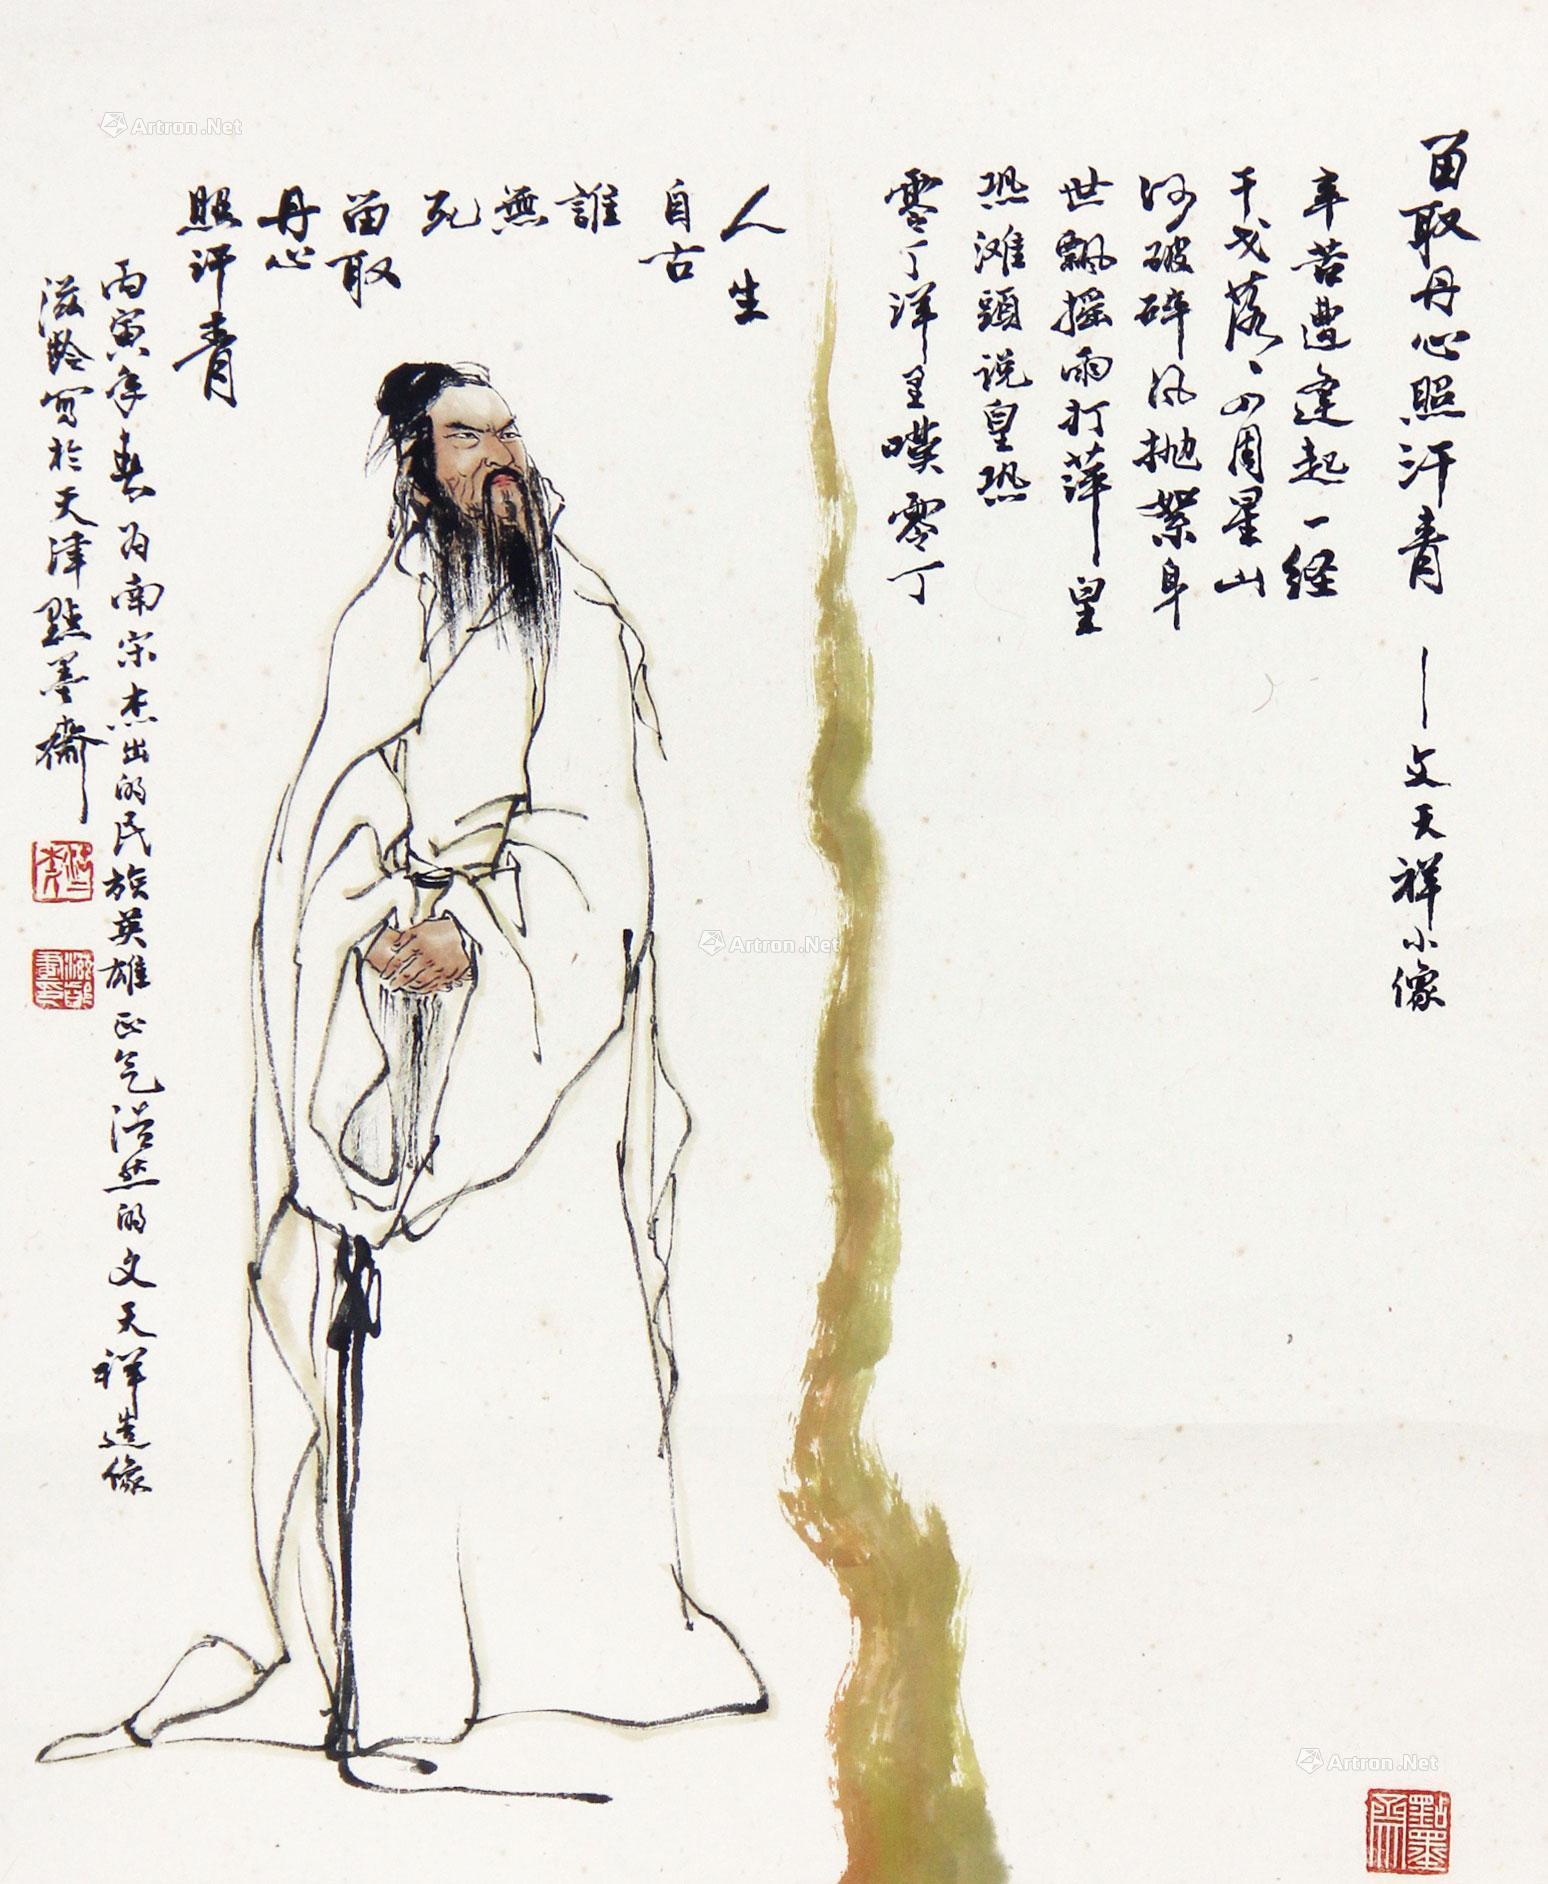 留取丹心照汗青——文天祥小像
辛苦遭逢起一经
干戈落々四周星山
河破碎风抛絮身
世飘摇雨打萍皇
恐滩頭说皇恐
零丁洋里嘆零丁
人生
自古
誰
無
死
留取
丹心
照汗青
丙寅年春为南宋杰出的民族英雄正气浩然的文天祥造像
滋龄写於天津點墨斋
點墨斋
Artron.Net
Artron.Net
Artron.Net